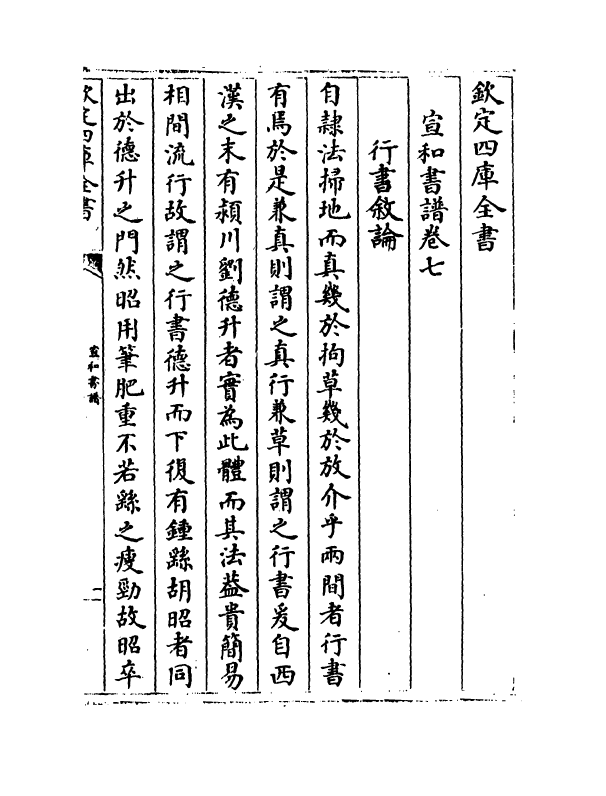 欽定四庫全書
宣和書譜卷七
行書敘論
自隷法掃地而真幾於拘草幾於放介乎兩間者行書
有焉於是兼真則謂之真行兼草則謂之行書爰自西
漢之末有潁川劉德升者實為此體而其法葢貴簡易
相間流行故謂之行書德升而下復有鍾繇胡昭者同
出於德升之門然昭用筆肥重不若繇之瘦勁故昭卒
欽定四庫全書
宣和書譜
一